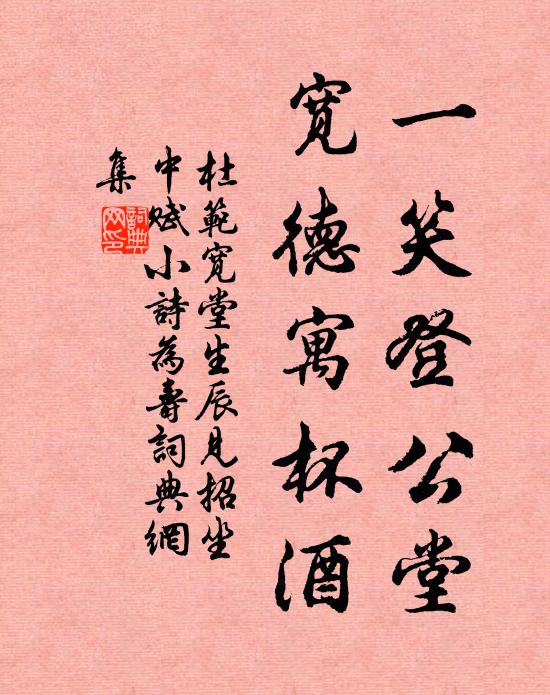 一笑登公堂
寬德寓杯酒
杜範寬堂生辰見招坐
中賦小詩為壽詞典網
集
詞典
网印